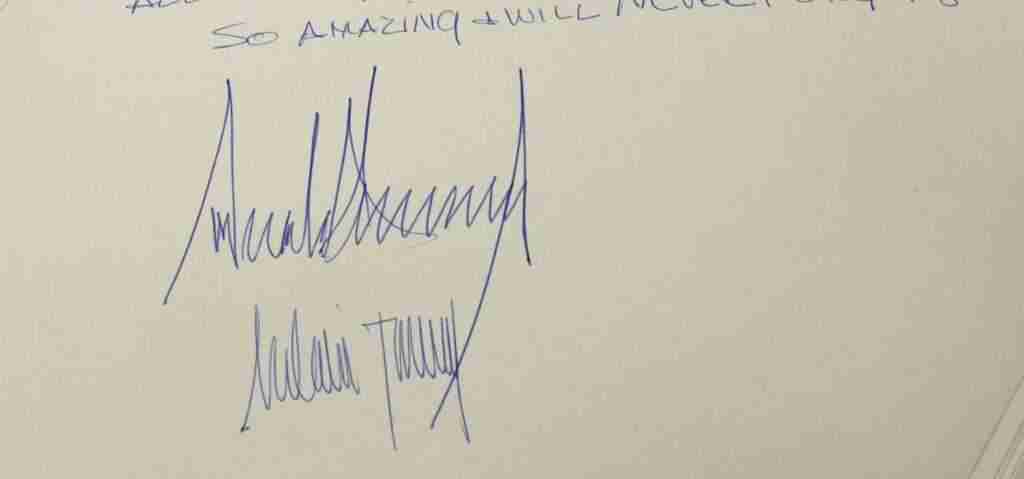 SO AMAZING + WILL NEVER FORGET
Donald Trump
Melania Trump